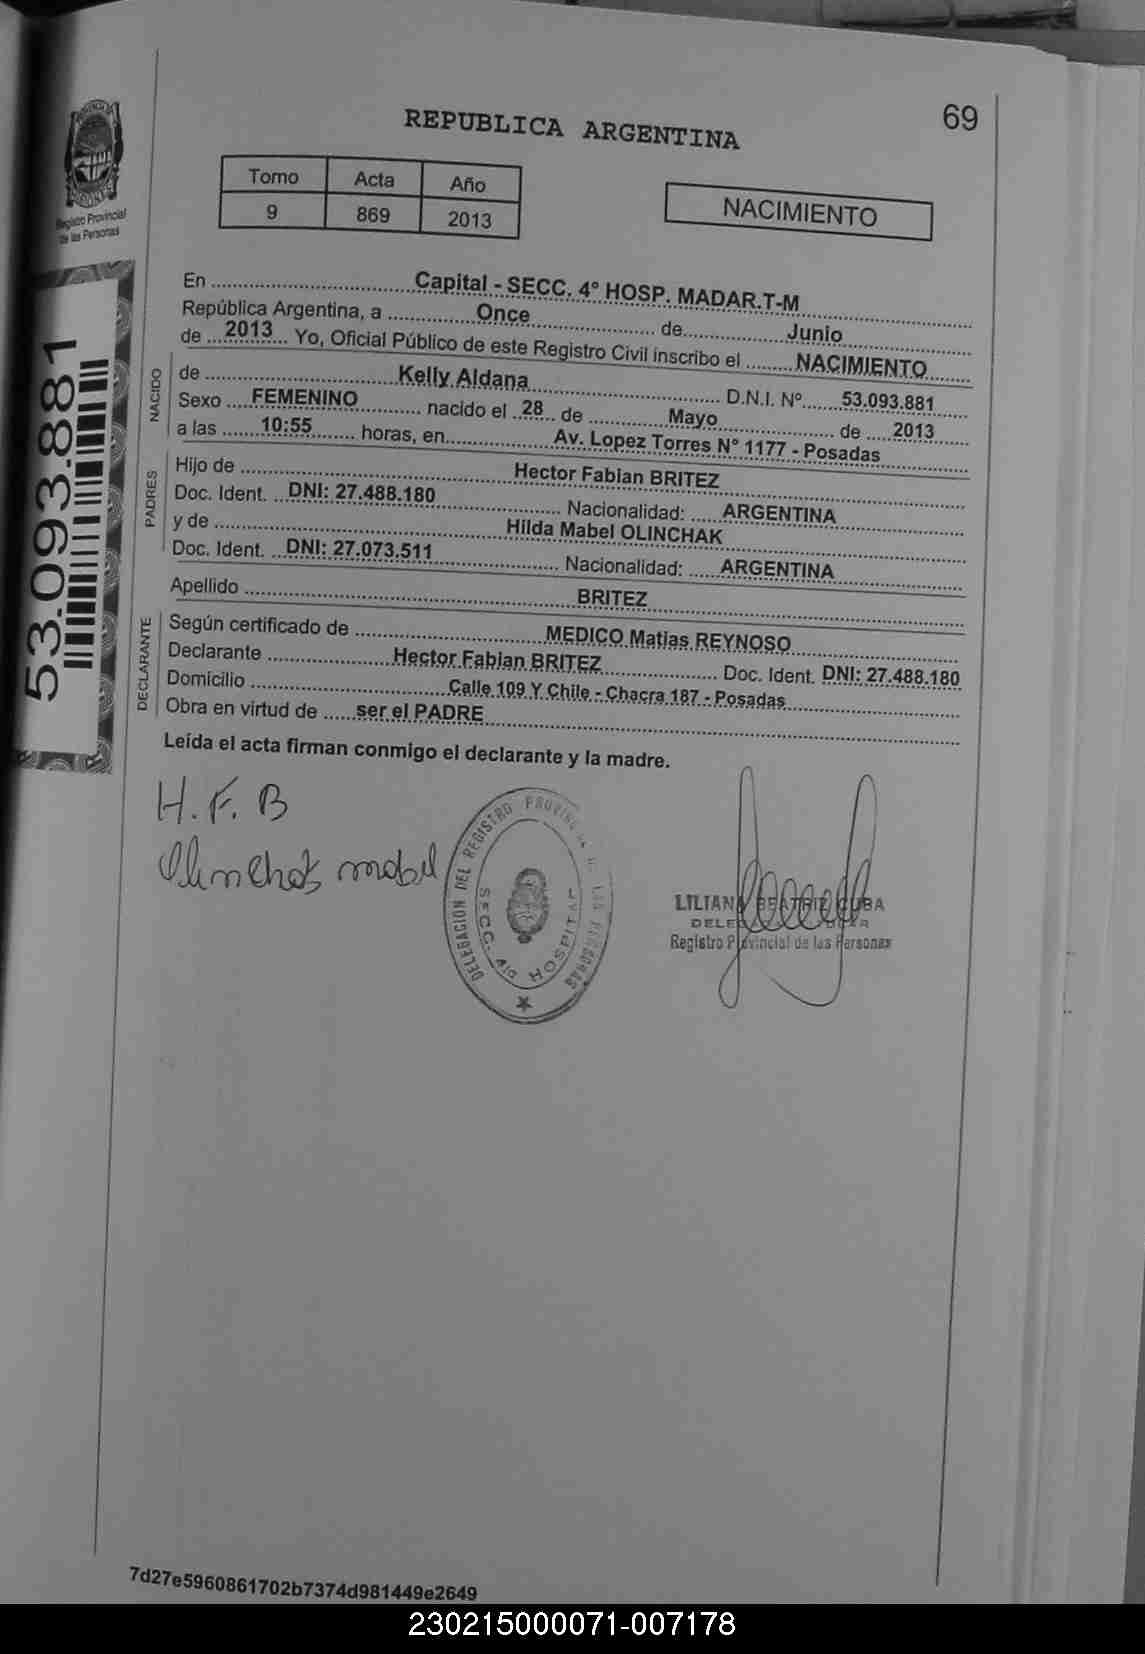 69
REPUBLICA ARGENTINA
Tomo Acta Año
9 869 2013
NACIMIENTO
Registro Provincial
de las Personas
53.093.881
En Capital - SECC. 4º HOSP. MADAR.T-M
República Argentina, a Once de Junio
de 2013 Yo, Oficial Público de este Registro Civil inscribo el NACIMIENTO
NACIDO
de Kelly Aldana D.N.I. Nº 53.093.881
Sexo FEMENINO nacido el 28 de Mayo de 2013
a las 10:55 horas, en Av. Lopez Torres N° 1177 - Posadas
PADRES
Hijo de Hector Fabian BRITEZ
Doc. Ident. DNI: 27.488.180 Nacionalidad: ARGENTINA
y de Hilda Mabel OLINCHAK
Doc. Ident. DNI: 27.073.511 Nacionalidad: ARGENTINA
Apellido BRITEZ
DECLARANTE
Según certificado de MEDICO Matias REYNOSO
Declarante Hector Fabian BRITEZ Doc. Ident. DNI: 27.488.180
Domicilio Calle 109 Y Chile - Chacra 187 - Posadas
Obra en virtud de ser el PADRE
Leída el acta firman conmigo el declarante y la madre.
H. F. B
Olinchak mabel
DELEGACION DEL REGISTRO PROVINCIAL DE LAS PERSONAS
SECC. 4ta HOSPITAL
LILIANA BEATRIZ CUBA
Registro Provincial de las Personas
7d27e5960861702b7374d981449e2649
230215000071-007178